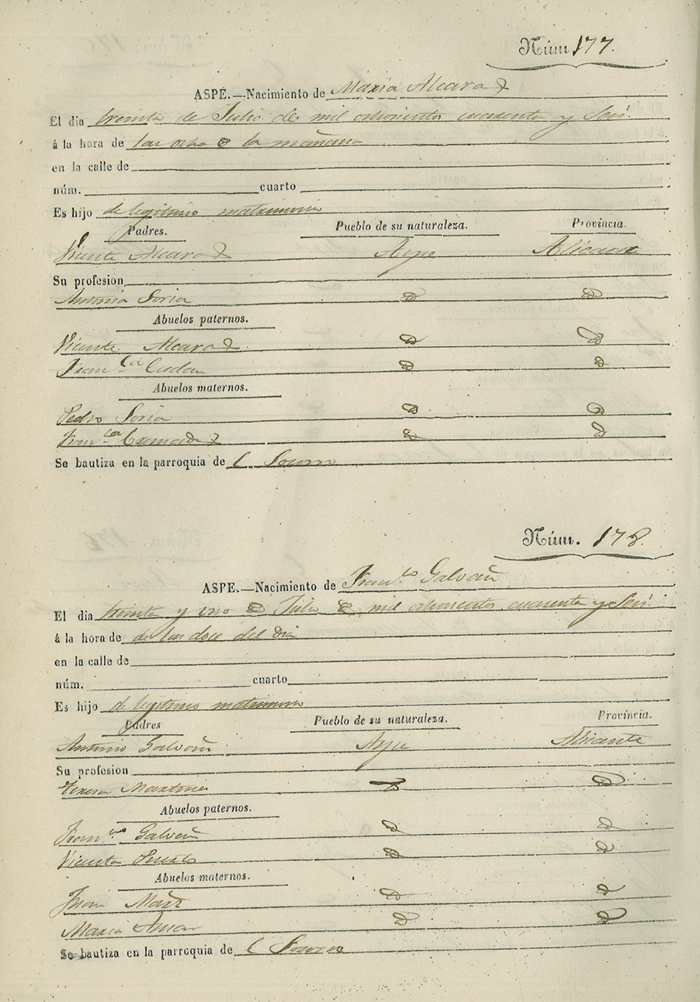 Núm 177.
ASPE.—Nacimiento de Maria Alcaraz
El dia treinta de Julio de mil ochocientos cuarenta y seis
á la hora de las ocho de la mañana
en la calle de
núm. cuarto
Es hijo de legitimo matrimonio
Padres. Pueblo de su naturaleza. Provincia.
Vicente Alcaraz Aspe Alicante
Su profesion
Antonia Soria
Abuelos paternos.
Vicente Alcaraz
Fran.ca
Abuelos maternos.
Pedro Soria
Fran.ca
Se bautiza en la parroquia de l Socorro
Núm. 178.
ASPE.—Nacimiento de Fran.co Galvañ
El dia treinta y uno de Julio de mil ochocientos cuarenta y seis
á la hora de de las doce del dia
en la calle de
núm. cuarto
Es hijo de legitimo matrimonio
Padres Pueblo de su naturaleza. Provincia.
Antonio Galvañ Aspe Alicante
Su profesion
Teresa Martinez
Abuelos paternos.
Fran.co Galvañ
Vicenta
Abuelos maternos.
Juan
Maria
Se bautiza en la parroquia de l Socorro